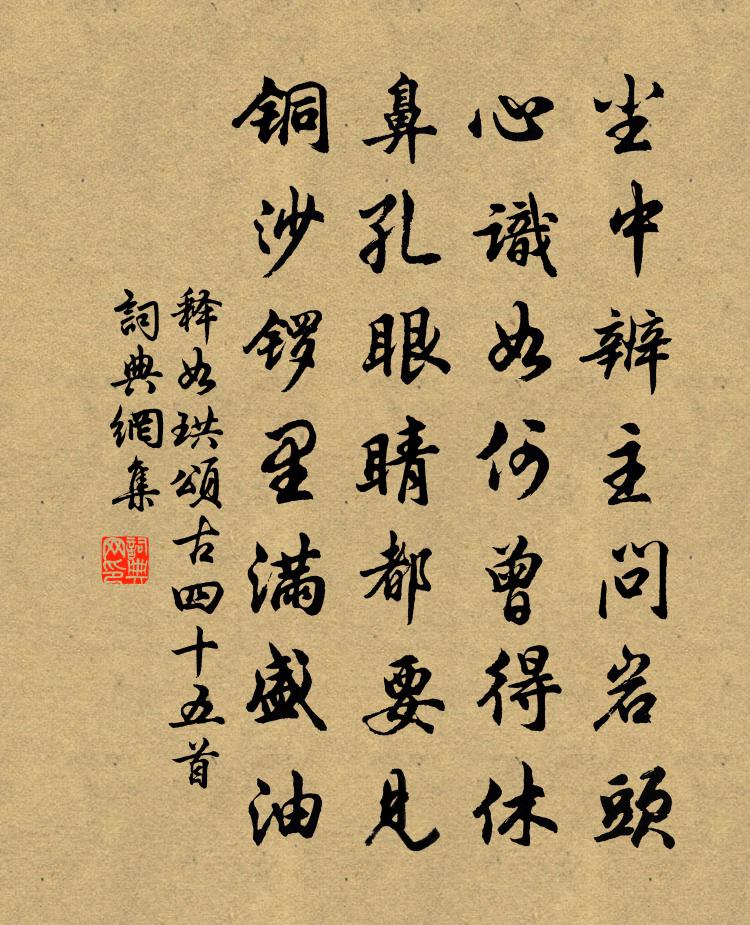 尘中辨主问岩頭
心識如何曾得休
鼻孔眼睛都要見
铜沙锣里满盛油
释如珙頌古四十五首
詞典網集
詞典
网印